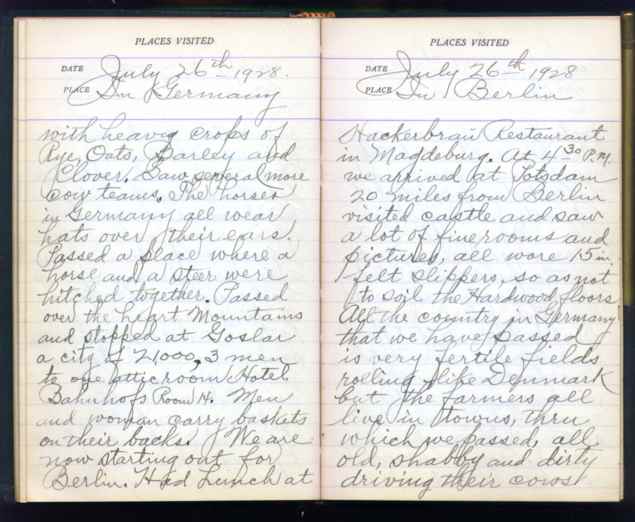 PLACES VISITED
DATE July 26th 1928.
PLACE In Germany
with heavy crops of
Rye, Oats, Barley and
Clover. Saw several more
cow teams. The horses
in Germany all wear
hats over their ears.
Passed a place where a
horse and a steer were
hitched together. Passed
over the heart Mountains
and stopped at Goslar
a city of 21000, 3 men
to one attic room Hotel
Bahnhofs Room 14. Men
and woman carry baskets
on their backs. We are
now starting out for
Berlin. Had Lunch at
PLACES VISITED
DATE July 26th 1928
PLACE In Berlin
Hackerbrau Restaurant
in Magdeburg. At 4 30 P.M.
we arrived at Potsdam
20 miles from Berlin
visited castle and saw
a lot of fine rooms and
pictures, all wore 15 in.
felt slippers, so as not
to soil the Hardwood floors
All the country in Germany
that we have passed
is very fertile fields
rolling like Denmark
but the farmers all
live in towns, thru
which we passed, all
old, shabby and dirty
driving their cows